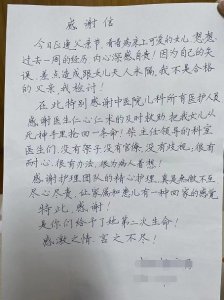 感谢信
今日在这父亲节,看着病床上可爱的女儿,想想
过去一周的经历 内心深感自责!因为自己的失
误,差点造成跟女儿天人永隔,我不是合格
的父亲,我检讨!
在此特别感谢中医院儿科所有医护人员
感谢医生仁心仁术的及时救助 把我女儿从
死神手里抢回一条命!柴主任领导的科室
医生们,没有架子,没有官僚,没有歧视,很有
耐心,很有办法,很为病人着想!
感谢护理团队的精心护理,真是无微不至
尽心尽责,让家属和患儿有一种回家的感觉
特此,感谢!
是你们给予了她第二次生命!
感激之情,言之不尽!